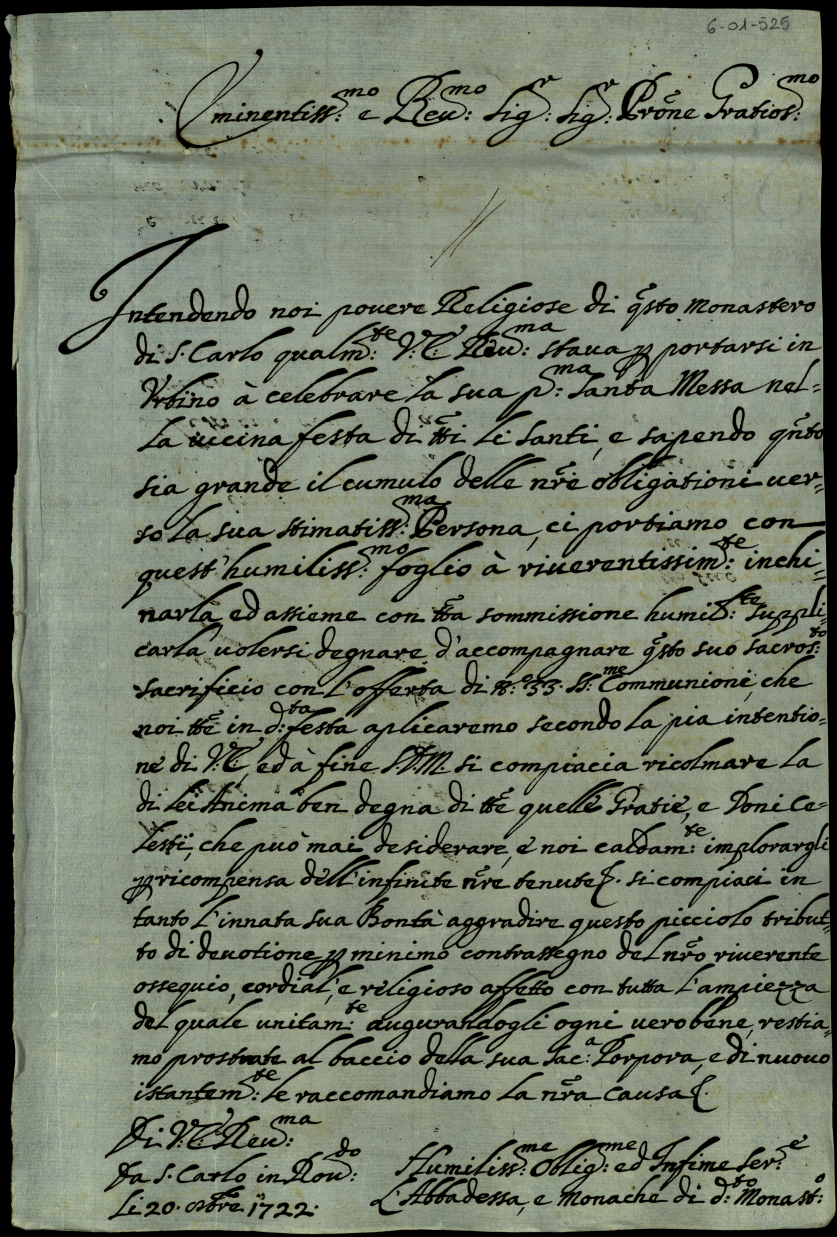 6-01-525
Eminentiss:mo e Reu:mo Sig:r Sig:r Prône Gratios:mo
Intendendo noi pouere Religiose di q̃sto Monastero
di S. Carlo qualm:te V: E: Reu:ma staua p portarsi in
Vrbino à celebrare la sua p:ma Santa Messa nel-
la uicina festa di tt̃i li Santi, e sapendo qñto
sia grande il cumulo delle nr̃e obligationi uer-
so la sua stimatiss:ma Persona, ci portiamo con
quest'humiliss:mo foglio à riuerentissim:te inchi-
narla ed assieme con tt̃a sommissione humil:te suppli-
carla uolersi degnare d'accompagnare q̃sto suo sacros:to
sacrificio con l'offerta di n.° 33. SS:me Communioni, che
noi tt̃e in d:ta festa aplicaremo secondo la pia intentio-
ne di V: E, ed à fine S.D.M. si compiacia ricolmare la
di lei Anima ben degna di tt̃e quelle Gratie, e Doni Ce-
lesti, che può mai desiderare, e noi caldam:te implorargli
p ricompensa dell'infinite nr̃e tenute. si compiaci in
tanto l'innata sua Bontà aggradire questo picciolo tribut-
to di deuotione p minimo contrassegno del nr̃o riuerente
ossequio, cordial', e religioso affetto con tutta l'ampiezza
del quale unitam:te augurandogli ogni uero bene, restia-
mo prostrate al baccio della sua Sac:a Porpora, e di nuouo
istantem:te le raccomandiamo la nr̃a Causa
Di V: E: Reu:ma
Da S. Carlo in Rou:do
Li 20. ottb̃re 1722.
Humiliss:me Oblig:me ed Infime Ser:e
L'Abbadessa, e Monache di d:to Monast:o